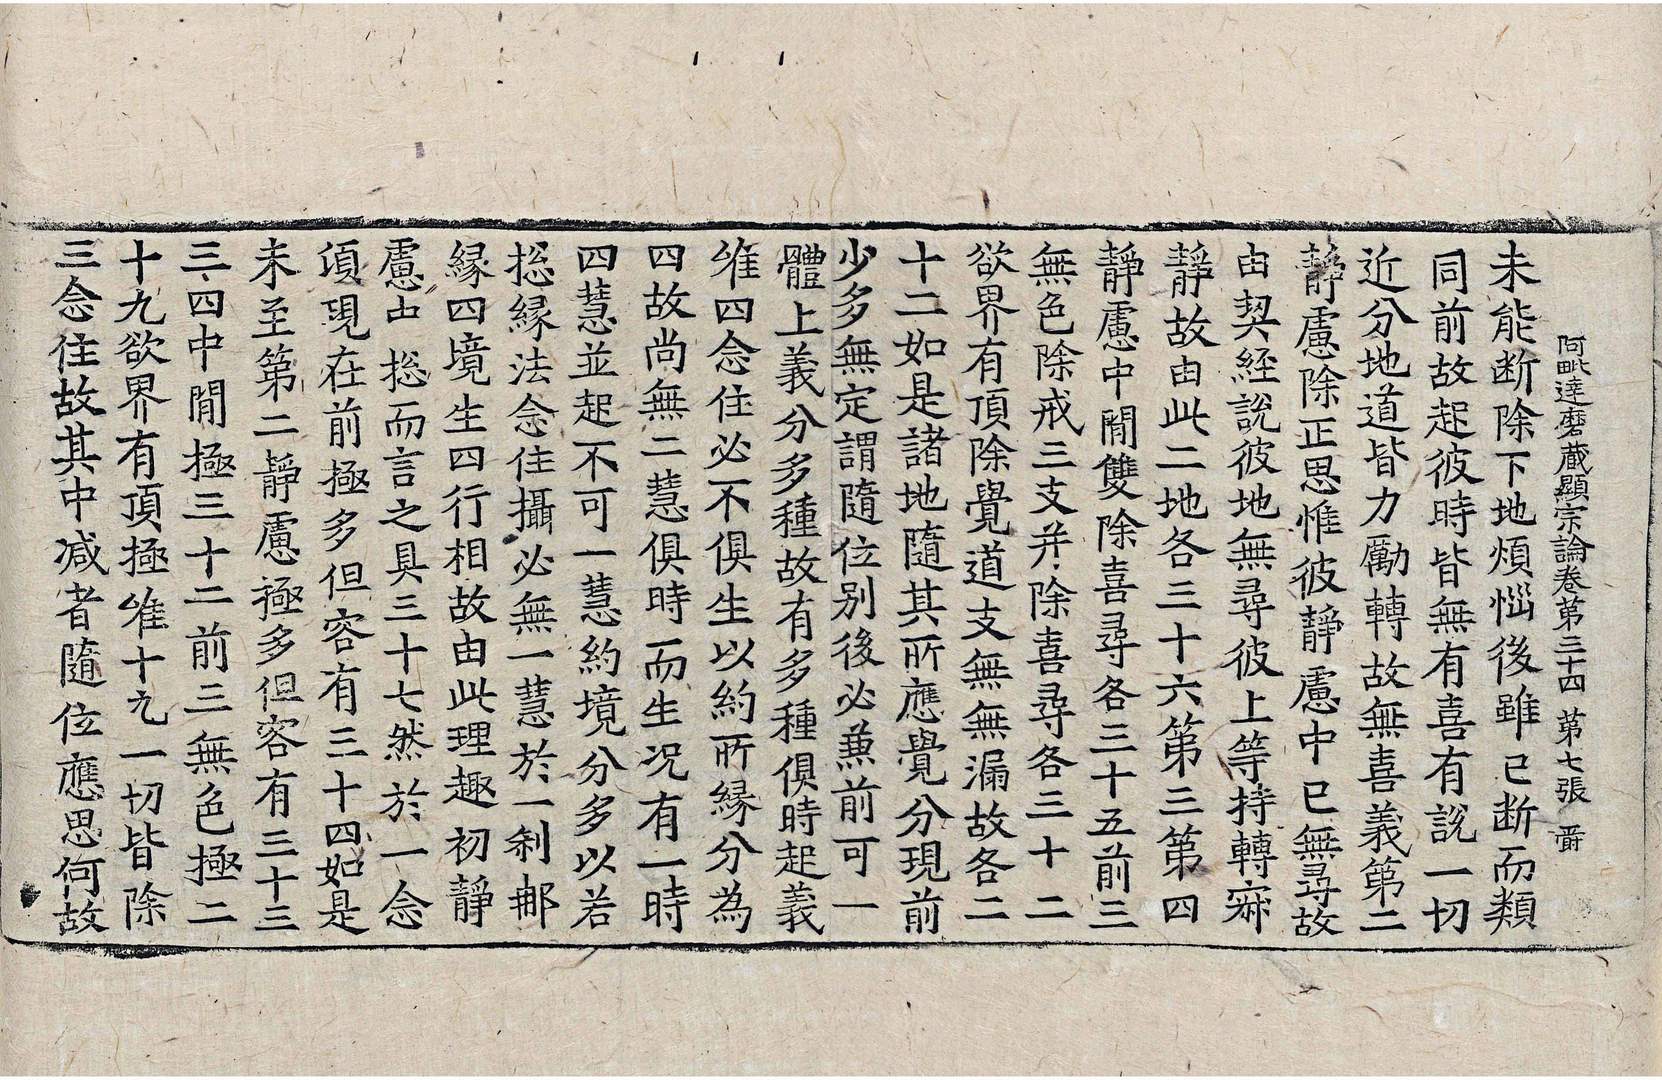 阿毗達磨藏顯宗論卷第三十四 第七張 爵
未能断除下地煩惱後雖已断而類
同前故起彼時皆無有喜有說一切
近分地道皆力勵轉故無喜義第二
靜慮除正思惟彼靜慮中已無尋故
由契経說彼地無尋彼上等持轉寂
靜故由此二地各三十六第三第四
靜慮中間雙除喜尋各三十五前三
無色除戒三支并除喜尋各三十二
欲界有頂除覺道支無無漏故各二
十二如是諸地隨其所應覺分現前
少多無定謂隨位別後必兼前可一
體上義分多種故有多種俱時起義
唯四念住必不俱生以約所緣分為
四故尚無二慧俱時而生况有一時
四慧並起不可一慧約境分多以若
揔緣法念住攝必無一慧於一剎那
緣四境生四行相故由此理趣初靜
慮中揔而言之具三十七然於一念
須現在前極多但容有三十四如是
未至第二靜慮極多但容有三十三
三四中間極三十二前三無色極二
十九欲界有頂極唯十九一切皆除
三念住故其中减者隨位應思何故